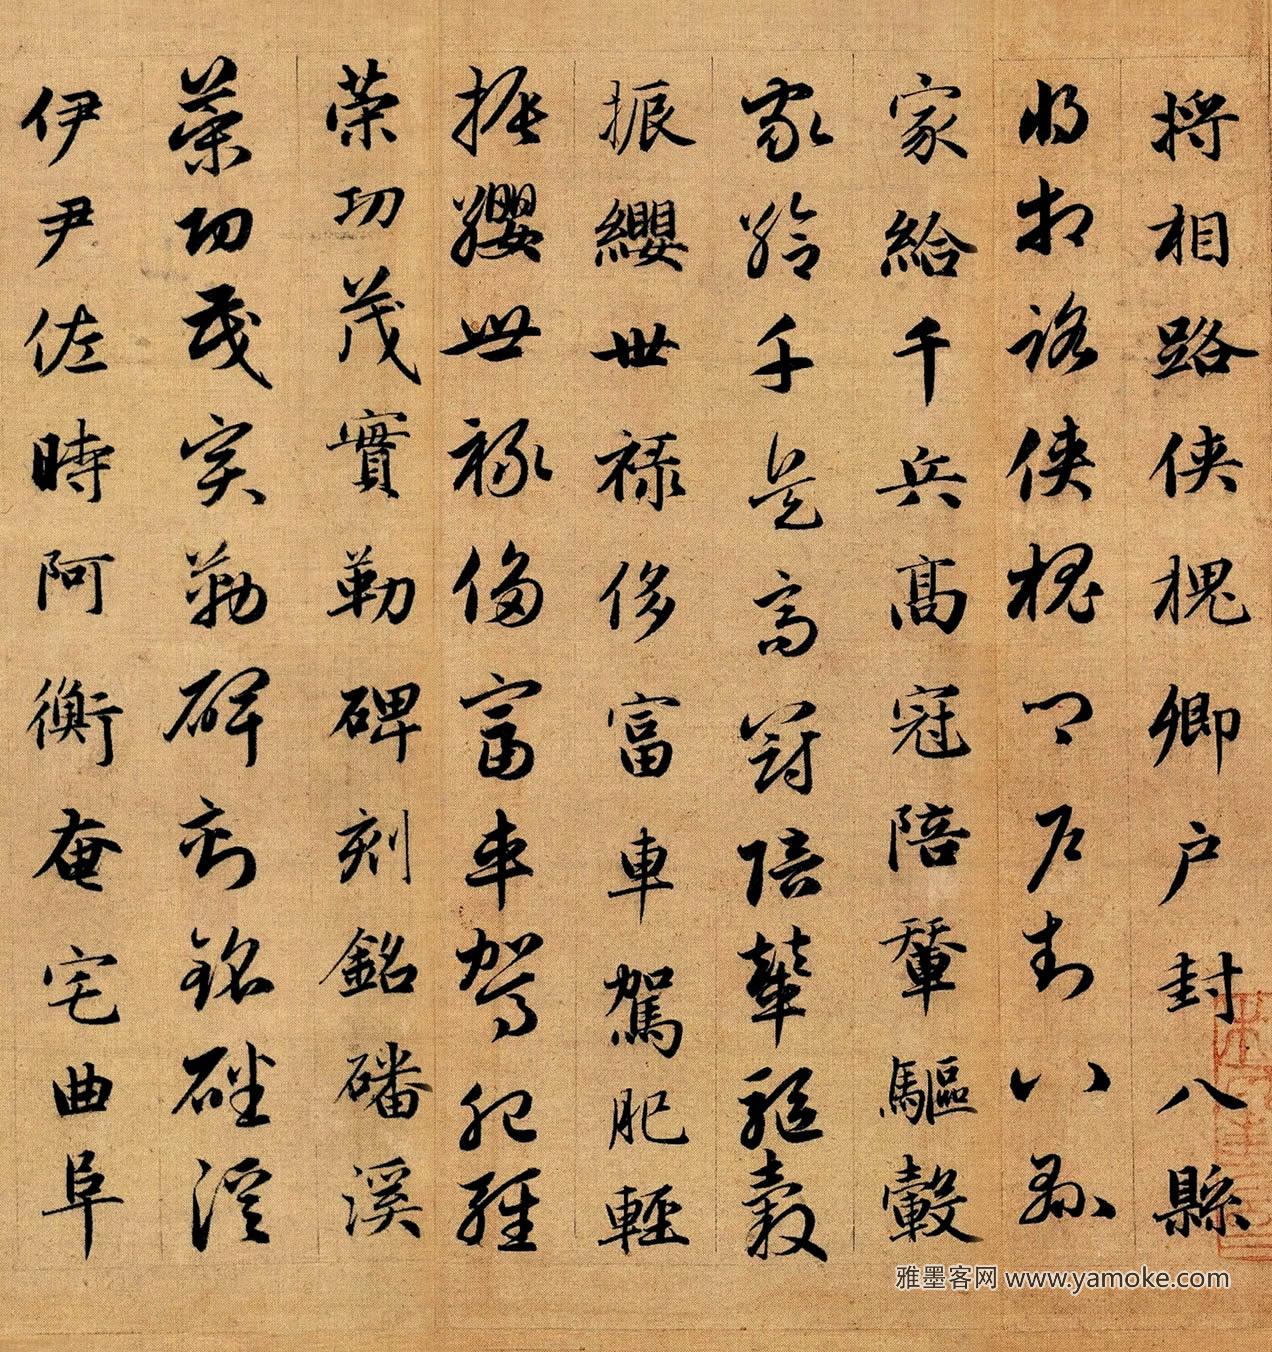 將相路侠槐卿户封八縣
將相路侠槐卿户封八縣
家給千兵髙冠陪輦驅轂
家給千兵高冠陪輦驅轂
振纓世禄侈富車駕肥輕
振纓世禄侈富車駕肥輕
策功茂實勒碑刻銘磻溪
策功茂實勒碑刻銘磻溪
伊尹佐時阿衡奄宅曲阜
雅墨客网 www.yamoke.com